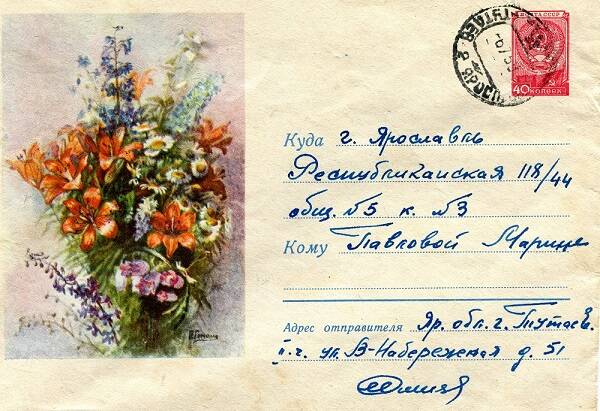 ПОЧТА СССР
40 КОПЕЕК
ТУТАЕВ
Куда г. Ярославль
Республиканская 118/44
общ. №5 к. №3
Кому Павловой Марине
Адрес отправителя Яр. обл. г. Тутаев.
II.ч. ул. В-Набережная д. 51